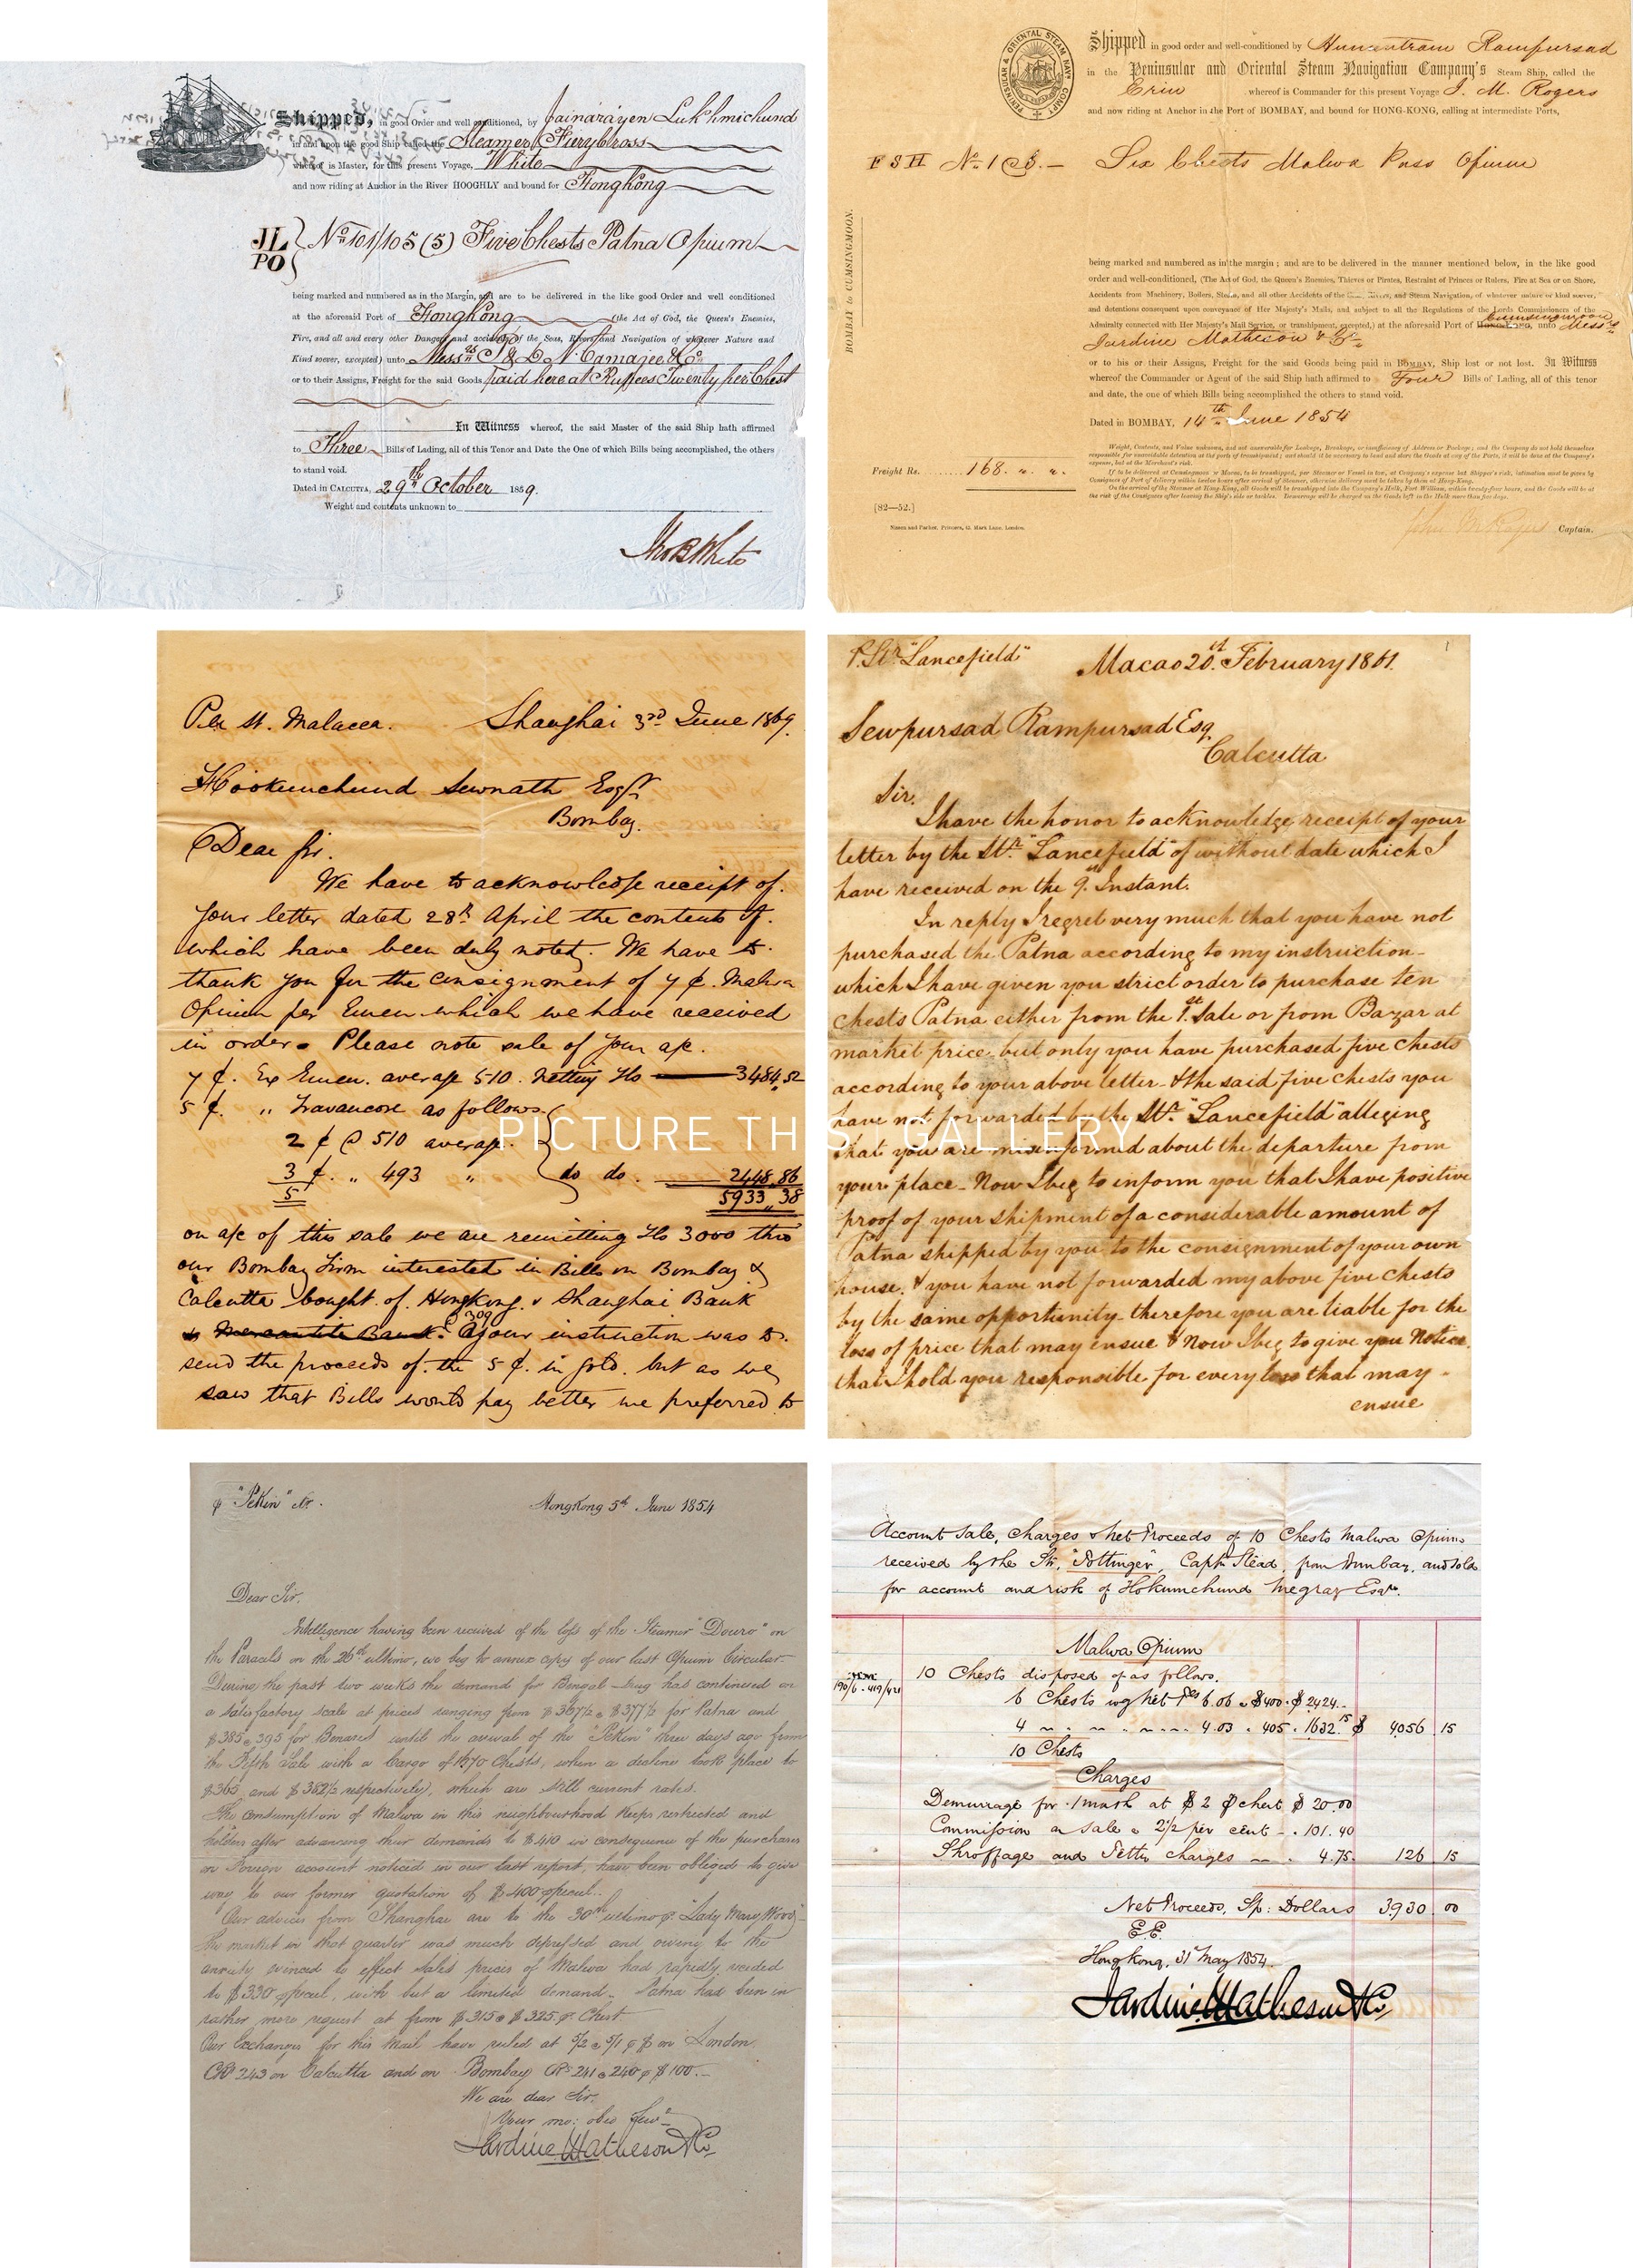 Shipped, in good Order and well conditioned, by Jainarayen Lukhmichund
in and upon the good Ship called the Steamer Fiery Cross
whereof is Master, for this present Voyage, White
and now riding at Anchor in the River HOOGHLY and bound for Hongkong
JL
PO
No 101/105 (5) Five Chests Patna Opium
being marked and numbered as in the Margin, and are to be delivered in the like good Order and well conditioned
at the aforesaid Port of Hongkong (the Act of God, the Queen's Enemies,
Fire, and all and every other Dangers and accidents of the Seas, Rivers and Navigation of whatever Nature and
Kind soever, excepted) unto Messrs P. & D. N. Camajee & Co
or to their Assigns, Freight for the said Goods paid here at Rupees Twenty per Chest
In Witness whereof, the said Master of the said Ship hath affirmed
to Three Bills of Lading, all of this Tenor and Date the One of which Bills being accomplished, the others
to stand void.
Dated in CALCUTTA, 29th October 1859.
Weight and contents unknown to
Jno B White
PENINSULAR & ORIENTAL STEAM NAVN COMPY
Shipped in good order and well-conditioned by Rampursad
in the Peninsular and Oriental Steam Navigation Company's Steam Ship, called the
Erin whereof is Commander for this present Voyage J. M. Rogers
and now riding at Anchor in the Port of BOMBAY, and bound for HONG-KONG, calling at intermediate Ports,
Six Chests Malwa Pass Opium
BOMBAY to CUMSINGMOON.
being marked and numbered as in the margin; and are to be delivered in the manner mentioned below, in the like good
order and well-conditioned, (The Act of God, the Queen's Enemies, Thieves or Pirates, Restraint of Princes or Rulers, Fire at Sea or on Shore,
Accidents from Machinery, Boilers, Steam, and all other Accidents of the Seas, Rivers, and Steam Navigation, of whatever nature or kind soever,
and detentions consequent upon conveyance of Her Majesty's Mails, and subject to all the Regulations of the Lords Commissioners of the
Admiralty connected with Her Majesty's Mail Service, or transhipment, excepted,) at the aforesaid Port of HONG-KONG, Cumsingmoon unto Messrs
Jardine Matheson & Co
or to his or their Assigns, Freight for the said Goods being paid in BOMBAY, Ship lost or not lost. In Witness
whereof the Commander or Agent of the said Ship hath affirmed to Four Bills of Lading, all of this tenor
and date, the one of which Bills being accomplished the others to stand void.
Dated in BOMBAY, 14th June 1854
Freight Rs. 168
[82—52.]
Captain.
Per st. Malacca. Shanghai 3rd June 1869.
Hookumchund Sewnath Esqr
Bombay.
Dear Sir.
We have to acknowledge receipt of.
your letter dated 28th April the contents of.
which have been duly noted. We have to.
thank you for the consignment of 7 ¢. Malwa
Opium per Emeu which we have received
in order. Please note sale of your a/c.
7 ¢. Ex Emeu. average 510. Netting 3484,52
5 ¢. " Travancore as follows.
2 ¢ @ 510 average.
3 ¢. " 493 " do do. 2448.86
5 5933,,38
on a/c of this sale we are remitting 3000 thro
our Bombay Firm interested in Bills on Bombay &
Calcutta bought of. Hongkong & Shanghai Bank
your instruction was to.
send the proceeds of. the 5 ¢. in gold. but as we
saw that Bills would pay better we preferred to
P. Str "Lancefield" Macao 20st. February 1861.
Sewpursad Rampursad Esq
Calcutta
Sir.
I have the honor to acknowledge receipt of your
letter by the Str. "Lancefield" of without date which I
have received on the 9. Instant.
In reply I regret very much that you have not
purchased the Patna according to my instruction
which I have given you strict order to purchase ten
chests Patna either from the 1st. Sale or from Bazar at
market price but only you have purchased five chests
according to your above letter & the said five chests you
have not forwarded by the Str. "Lancefield" alleging
that you are misinformed about the departure from
your place - Now I beg to inform you that I have positive
proof of your shipment of a considerable amount of
Patna shipped by you to the consignment of your own
house. & you have not forwarded my above five chests
by the same opportunity therefore you are liable for the
loss of price that may ensue & Now I beg to give you Notice
that I hold you responsible for every loss that may
ensue
PICTURE THIS GALLERY
p "Pekin" str. Hongkong 5th June 1854
Dear Sir.
Intelligence having been received of the loss of the Steamer "Douro" on
the Paracels on the 26th ultimo, we beg to annex copy of our last Opium Circular
During the past two weeks the demand for Bengal drug has continued on
a satisfactory scale at prices ranging from $367½ @ $377½ for Patna and
$385 @ 395 for Benares until the arrival of the "Pekin" three days ago from
the Fifth Sale with a Cargo of 1670 Chests, when a decline took place to
$365 and $382½ respectively, which are still current rates.
The consumption of Malwa in this neighbourhood keeps restricted and
holders after advancing their demands to $410 in consequence of the purchases
on Foreign account noticed in our last report, have been obliged to give
way to our former quotation of $400 p pecul.
Our advices from Shanghae are to the 30th ultimo p "Lady Mary Wood"
The market in that quarter was much depressed and owing to the
anxiety evinced to effect sales prices of Malwa had rapidly receded
to $330 p pecul, with but a limited demand. Patna had been in
rather more request at from $315 @ $325 p Chest
Our Exchanges for this Mail have ruled at 5/2 @ 5/1 p $ on London
CRs 243 on Calcutta and on Bombay Rs 241 @ 240 p $100.
We are dear Sir.
Your mo: obt Servts
Jardine Matheson & Co
Account Sale, Charges & Net Proceeds of 10 Chests Malwa Opium
received by the Str. "Pottinger", Captn Stead, from Bombay, and sold
for account and risk of Hokumchund Megraz Esqr.
Malwa Opium
10 Chests disposed of as follows.
190/6 - 419/421
6 Chests wg Net Pls 6.06 @ $400. $2424.
4 " " " " 4.03 " 405. 1632.15 $ 4056 15
10 Chests
Charges
Demurrage for 1 month at $2 p chest $ 20.00
Commission on sale @ 2½ per cent . 101.40
Shroffage and Petty charges . 4.75. 126 15
Net Proceeds, Sp: Dollars 3930.00
E.E.
Hongkong, 31st May 1854.
Jardine Matheson & Co